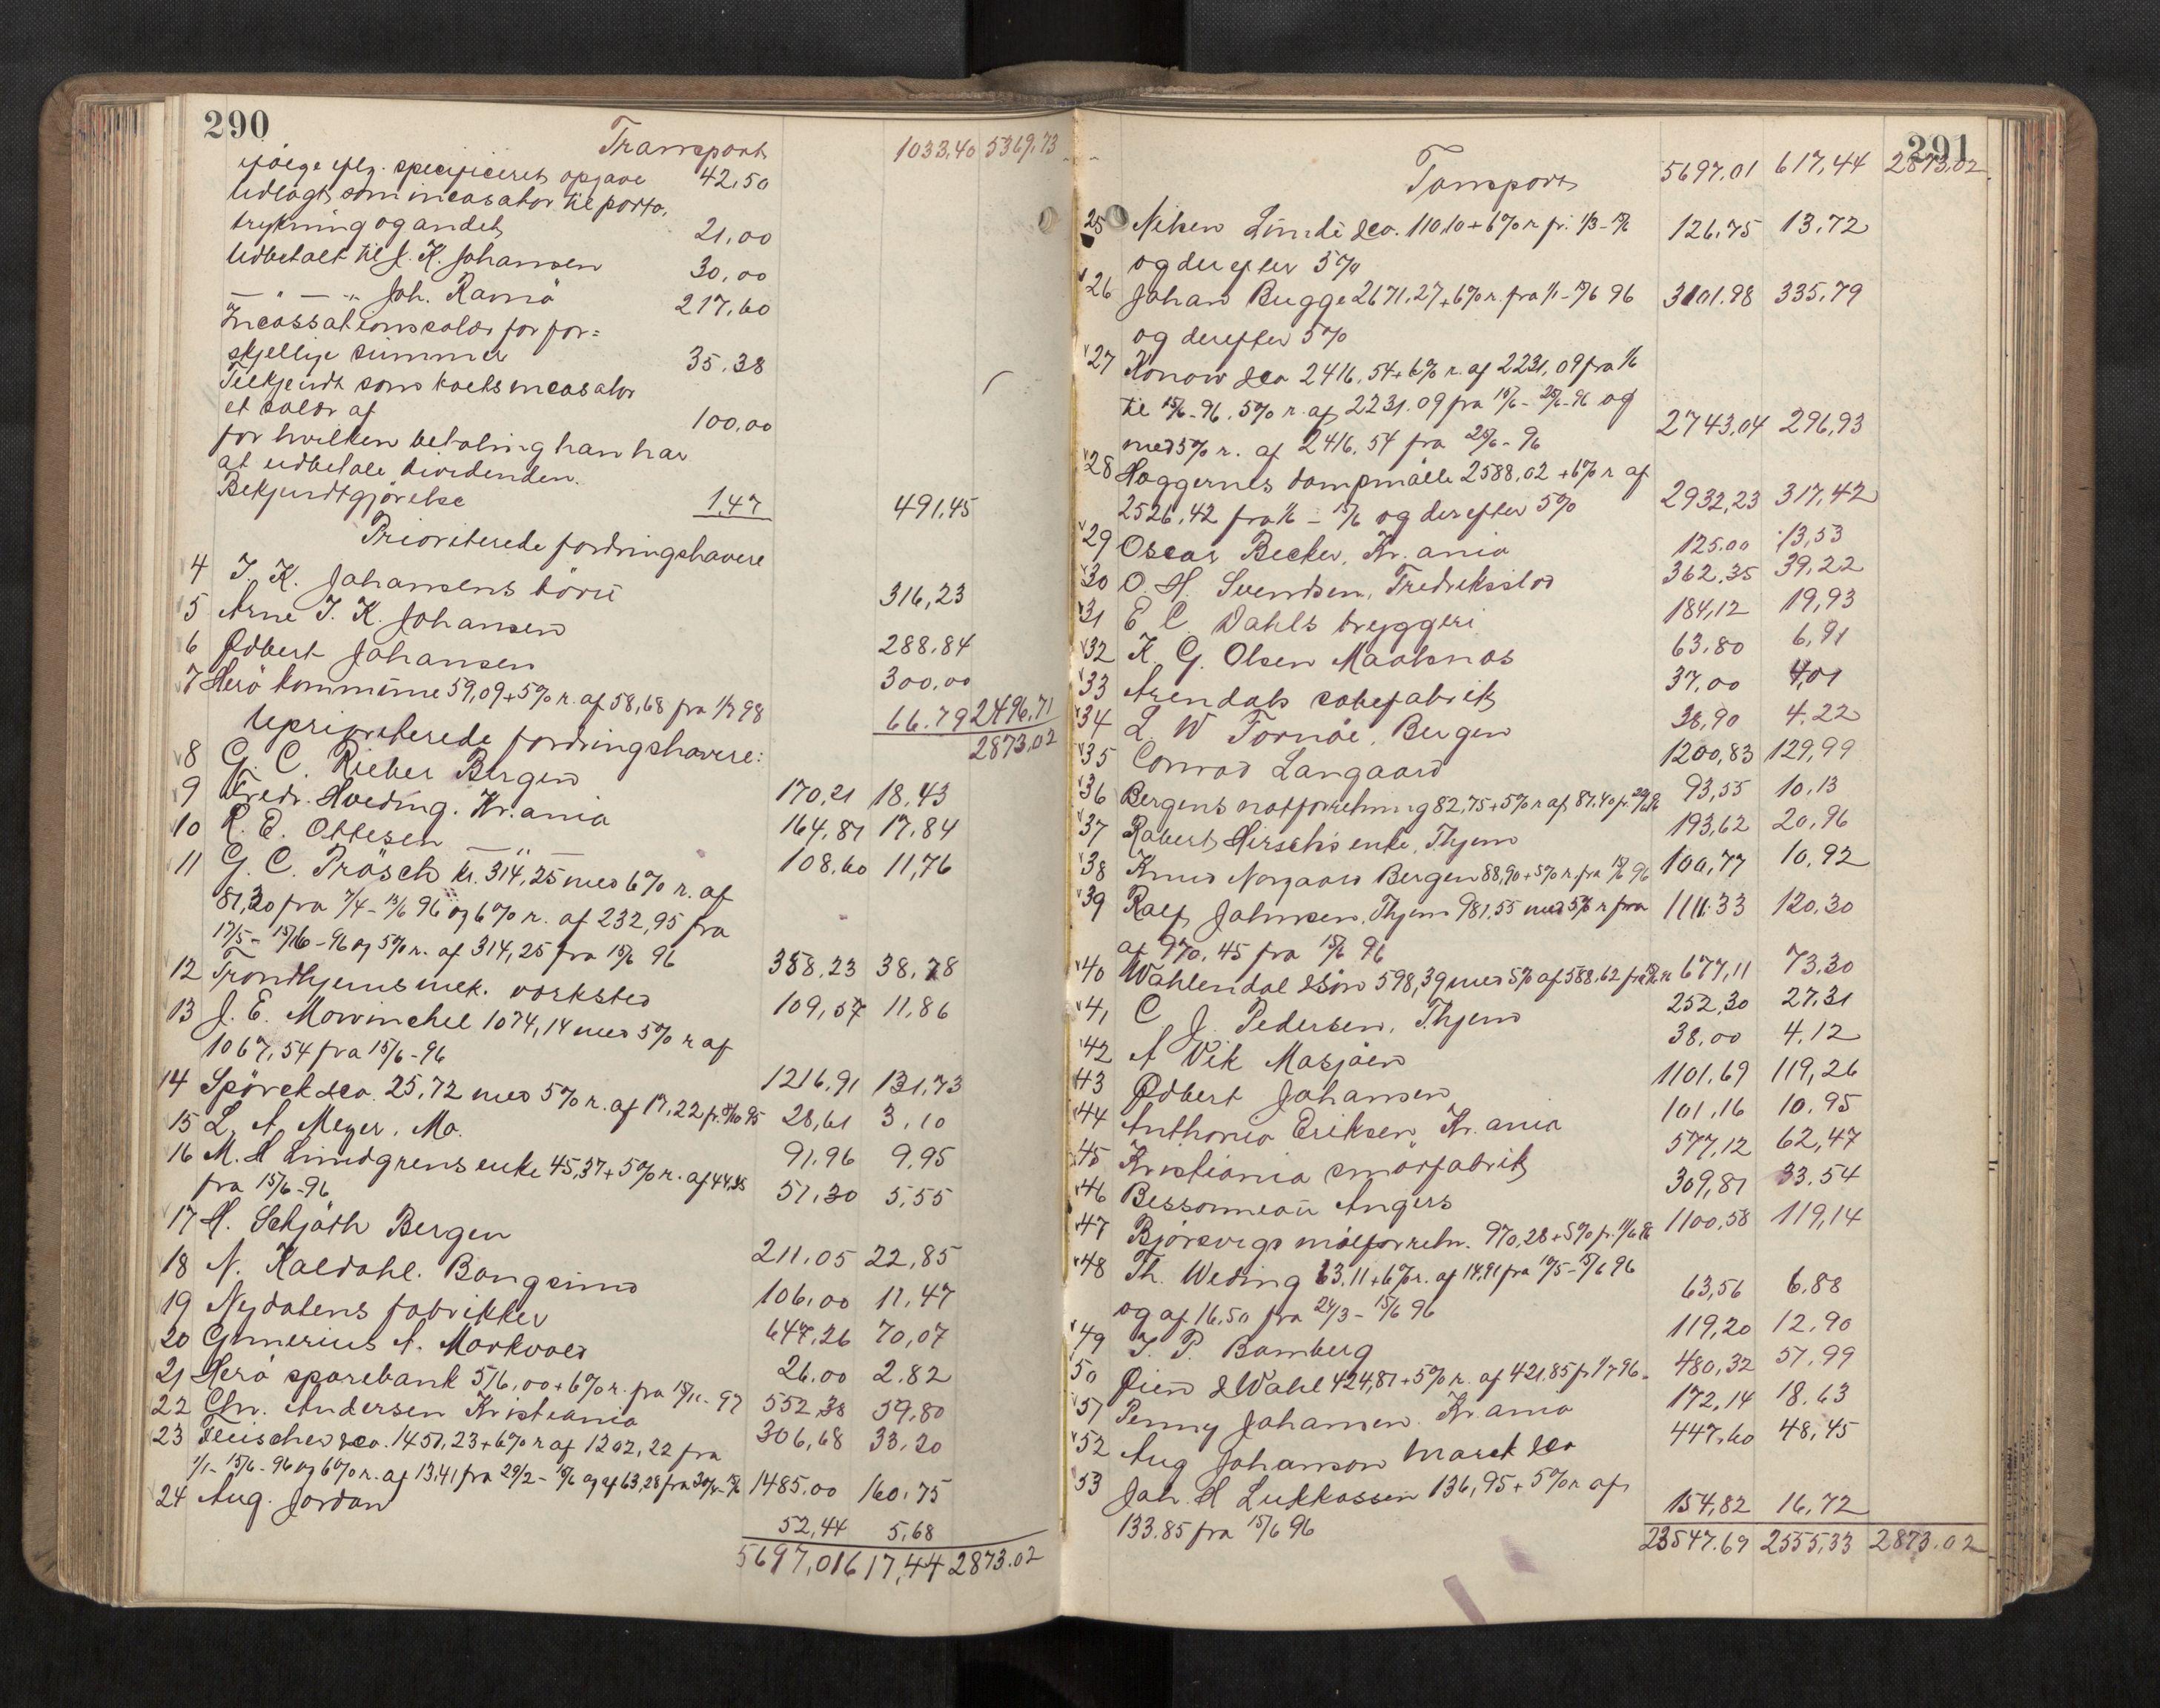 290
Transport 1033,40 5369,73
ifølge eftr. specificeret opgave 42,50
Udlagt som incasator til porto,
trykning og andet 21,00
Udbetalt til J. K. Johansen 30,00
— " — " Joh. Ramö 217,60
Incassationssalær for for=
skjellige summer 35.38
Tilkjendt som boets incasator
et salær af 100,00
for hvilken betaling han har
at udbetale dividenden.
Bekjendtgjörelse 1,47 491,45
Prioriterede fordringshavere
4 J. K. Johansens börn 316,23
5 Arne J. K. Johansen 288.84
6 Edbert Johansen 300,00
7 Herö kommune 59,09+5% r. af 58,68 fra 1/7 98 66.79 2496,71
Uprioriterede fordringshavere: 2873.02
8 G. C. Rieber Bergen 170,21 18,43
9 Fredr. Hoeding. Kr.ania 164,81 17,84
10 R. E. Ottesen — " — 108,60 11,76
11 G. C. Prösch kr. 314,25 med 6% r. af
81,30 fra 7/4 - 15/6 96 og 6% r. af 232,95 fra
17/5 - 15/6 - 96 og 5% r. af 314,25 fra 15/6 96 358,23 38,78
12 Trondhjems mek. værksted 109,57 11,86
13 J. E. Mowinchel 1074,14 med 5% r af
1067,54 fra 15/6 - 96 1216,91 131,73
14 Spörck & Co. 25,72 med 5% r. af 17,22 fr. 8/10 95 28,61 3,10
15 L. A. Meyer, Mo. 91,96 9,95
16 M. H Lundgrens enke 45,37+5% r. af 44,35
fra 15/6 - 96 51,30 5,55
17 H. Schjöth Bergen 211,05 22,85
18 N. Kaldahl. Bangsund 106,00 11,47
19 Nydalens fabrikker 647,26 70,07
20 Gunerius A. Markvold 26.00 2.82
21 Herö sparebank 516,00+6% r. fra 15/11 - 97 552,38 59,80
22 Chr. Andersen Kristiania 306,68 33,20
23 Fleischer & Co. 1451,23+6% r af 1202,22 fra
1/1 - 15/6 - 96 og 6% r. af 13,41 fra 29/2 - 15/6 og af 63,28 fra 30/4 - 15/6 1485.00 160,75
24 Aug. Jordan 52,44 5,68
5697,01 617,44 2873.02
291
Tansport 5697.01 617,44 2873,02
25 Nilsen Lunde & Co. 110,10+6% r fr. 1/3 - 15/6 126.75 13.72
og derefter 5%
26 Johan Bugge 2671,27+6% r. fra 1/1 - 15/6 96 3101.98 335,79
og derefter 5%
27 Konow & Co 2416.54+6% r. af 2231,09 fra 1/6
til 15/6 - 96. 5% r. af 2231.09 fra 15/6 - 25/6 - 96 og
med 5% r. af 2416.54 fra 25/6 - 96 2743,04 296,93
28 Haggernes dampmölle 2588,02 +6% r af
2526,42 fra 1/6 - 15/6 og derefter 5% 2932,23 317,42
29 Oscar Becker, Kr.ania 125.00 13,53
30 O. H. Svendsen, Fredriksstad 362,35 39,22
31 E C. Dahls bryggeri 184,12 19,93
32 K. G. Olsen Maaksnæs 63.80 6,91
33 Arendals sæbefabrik 37,00 4,01
34 L. W Tornöe. Bergen 38,90 4,22
35 Conrad Langaard 1200,83 129,99
36 Bergens notforretning 82,75+5% r af 81,40 fr. 29/6 96 93,55 10.13
37 Robert Hirsch's enke, Thjem 193,62 20,96
38 Knud Norgaard Bergen 88,90+5% r. fra 15/6 96 100,77 10,92
39 Ralf Johnsen, Thjem 981,55 med 5% r fra 1111.33 120,30
af 970,45 fra 15/6 96
40 Wahlendal & Sön 598,39 med 5% af 588.62 fra 15/6 96 677,11 73.30
41 C J. Pedersen, Thjem 252,30 27,31
42 A Vik Mosjöen 38,00 4.12
43 Edbert Johansen 1101,69 119,26
44 Anthonia Eriksen, Kr.ania 101,16 10,95
45 Kristiania smörfabrik 577,12 62,47
46 Bessonneau Angers 309,81 33.54
47 Björsvigs mölleforretn. 970,28+5% fr. 1/6 96 1100,58 119,14
48 Th. Weding 63,11+6% r. af 14,91 fra 10/5 - 15/6 96
og af 16,50 fra 24/3 - 15/6 96 63,56 6.88
49 J. P. Bamberg 119,20 12.90
50 Öien & Wahl 424,81+5% r. af 421,85 fr 1/7 96. 480,32 51,99
51 Penny Johansen. Kr.ania 172,14 18.63
52 Aug Johanson Marck & Co 447,60 48,45
53 Joh. H Lukkassen 136,95+5% r af
133.85 fra 15/6 96 154,82 16,72
23547.69 2555,33 2873.02